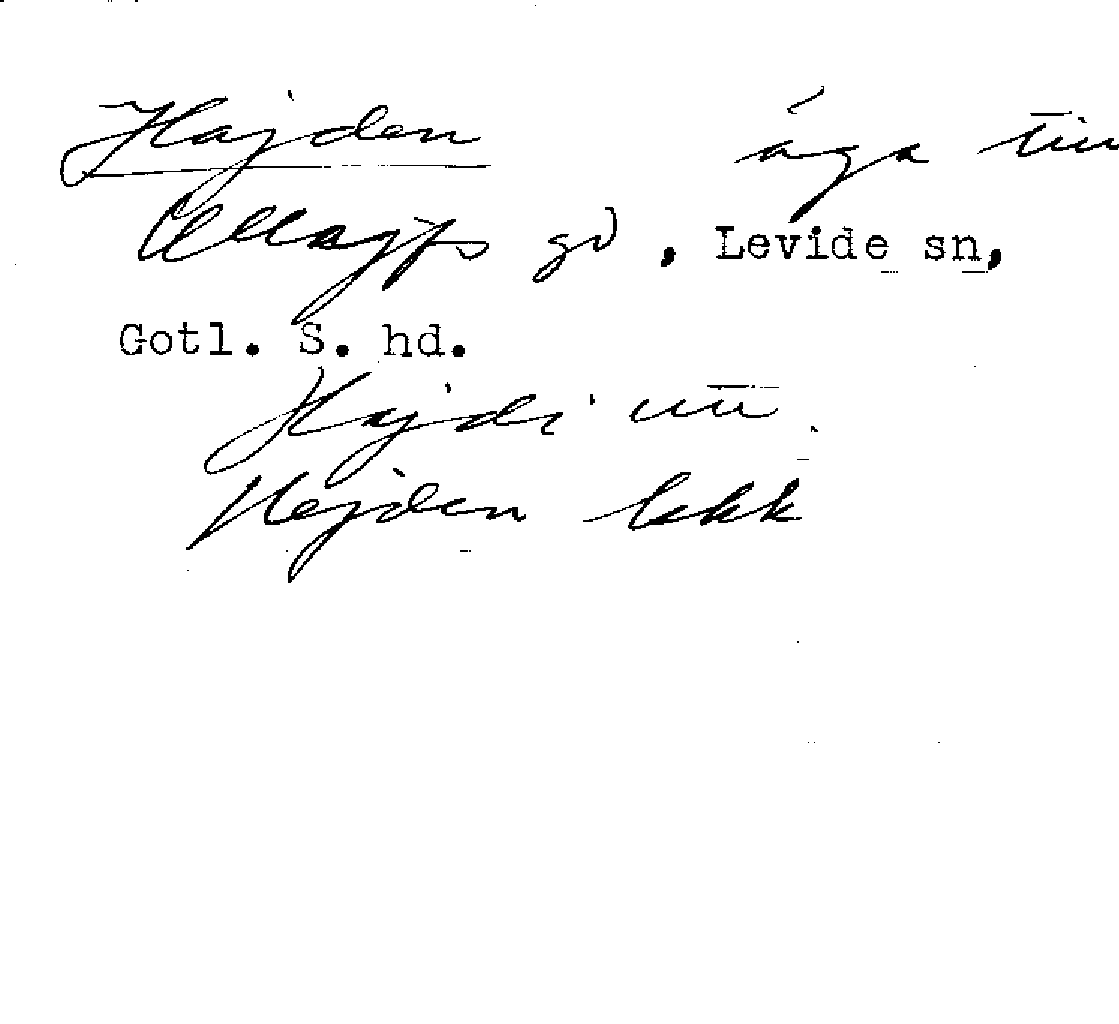 Hajden äga till
gd, Levide sn,
Gotl. S. hd.
Hajdi
Hejden lekk